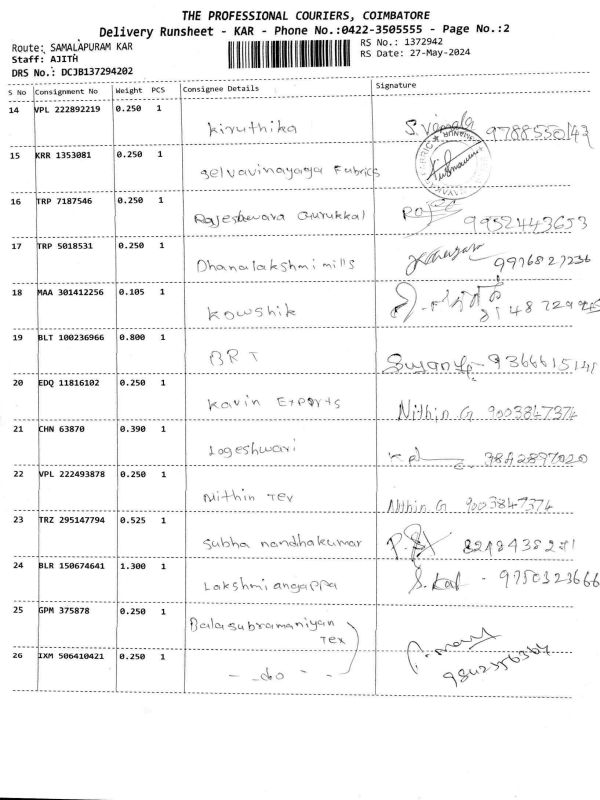 THE PROFESSIONAL COURIERS, COIMBATORE
Delivery Runsheet - KAR - Phone No.:0422-3505555 - Page No.:2
Route: SAMALAPURAM KAR
RS No.: 1372942
Staff: AJITH
RS Date: 27-May-2024
DRS No.: DCJB137294202
S No Consignment No Weight PCS Consignee Details Signature
14 VPL 222892219 0.250 1
Kiruthika S. Vimala 9788550143
15 KRR 1353081 0.250 1
Selvavinayaga Fabrics
16 TRP 7187546 0.250 1
Rajeshwara Gurukkal 9952443653
17 TRP 5018531 0.250 1
Dhanalakshmi mills 9976827236
18 MAA 301412256 0.105 1
Kowshik
19 BLT 100236966 0.800 1
BRT
20 EDQ 11816102 0.250 1
Kavin Exports Nithin G 9003847374
21 CHN 63870 0.390 1
Logeshwari
22 VPL 222493878 0.250 1
Nithin Tex Nithin G 9003847374
23 TRZ 295147794 0.525 1
Subha nandhakumar
24 BLR 150674641 1.300 1
Lakshmi angappa 9750323666
25 GPM 375878 0.250 1
Balasubramaniyan
Tex
26 IXM 506410421 0.250 1
- do -